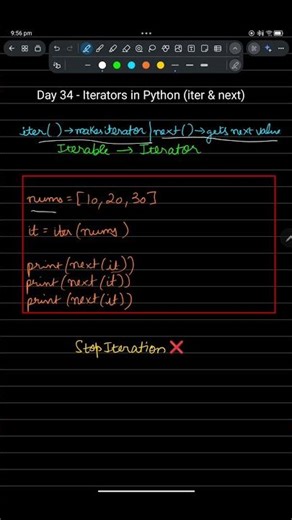 9:56 pm
Day 34 - Iterators in Python (iter & next)
iter() → makes iterator | next() → gets next value
Iterable → Iterator
nums = [10, 20, 30]
it = iter(nums)
print(next(it))
print(next(it))
print(next(it))
StopIteration ❌